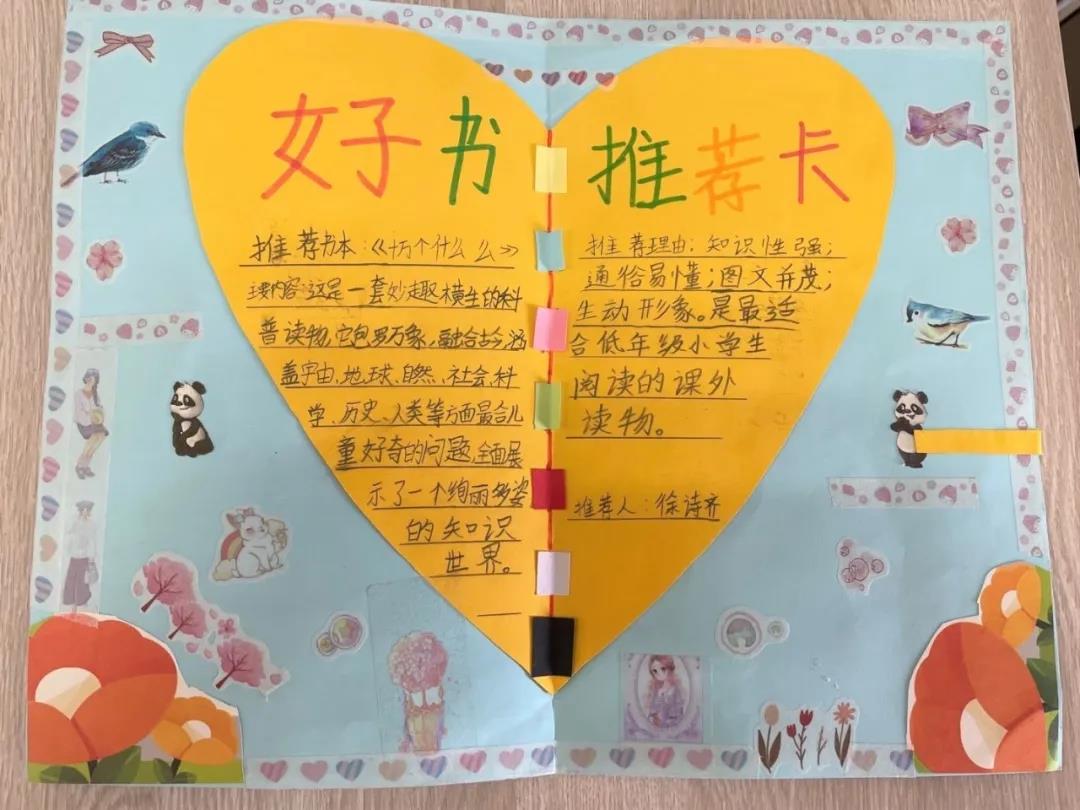 好子书推荐卡
推荐书本:《十万个什么 么》
主要内容:这是一套妙趣横生的科
普读物,它包罗万象,融合古今,涵
盖宇宙、地球、自然、社会、科
学、历史、人类等方面最合儿
童好奇的问题,全面展
示了一个绚丽多姿
的知识
世界。
推荐理由:知识性强;
通俗易懂;图文并茂;
生动形象。是最适
合低年级小学生
阅读的课外
读物。
推荐人:徐诗齐